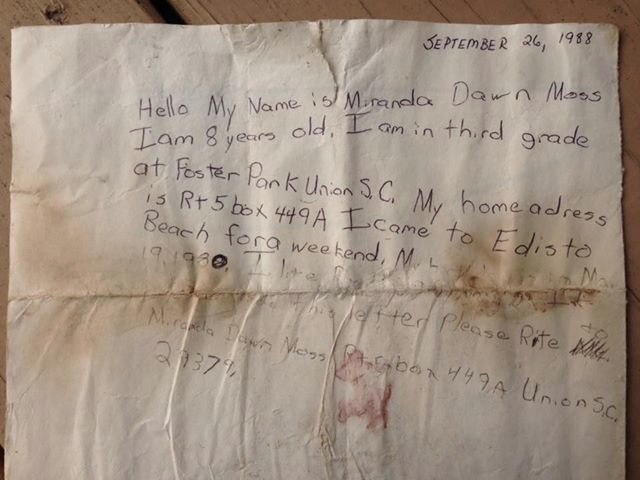 SEPTEMBER 26, 1988
Hello My Name is Miranda Dawn Moss
I am 8 years old. I am in third grade
at Foster Park Union S.C. My home adress
is Rt 5 box 449A I came to Edisto
Beach for a weekend,
I
this letter Please Rite to
Miranda Dawn Moss Rt 5 box 449A Union S.C.
29379,